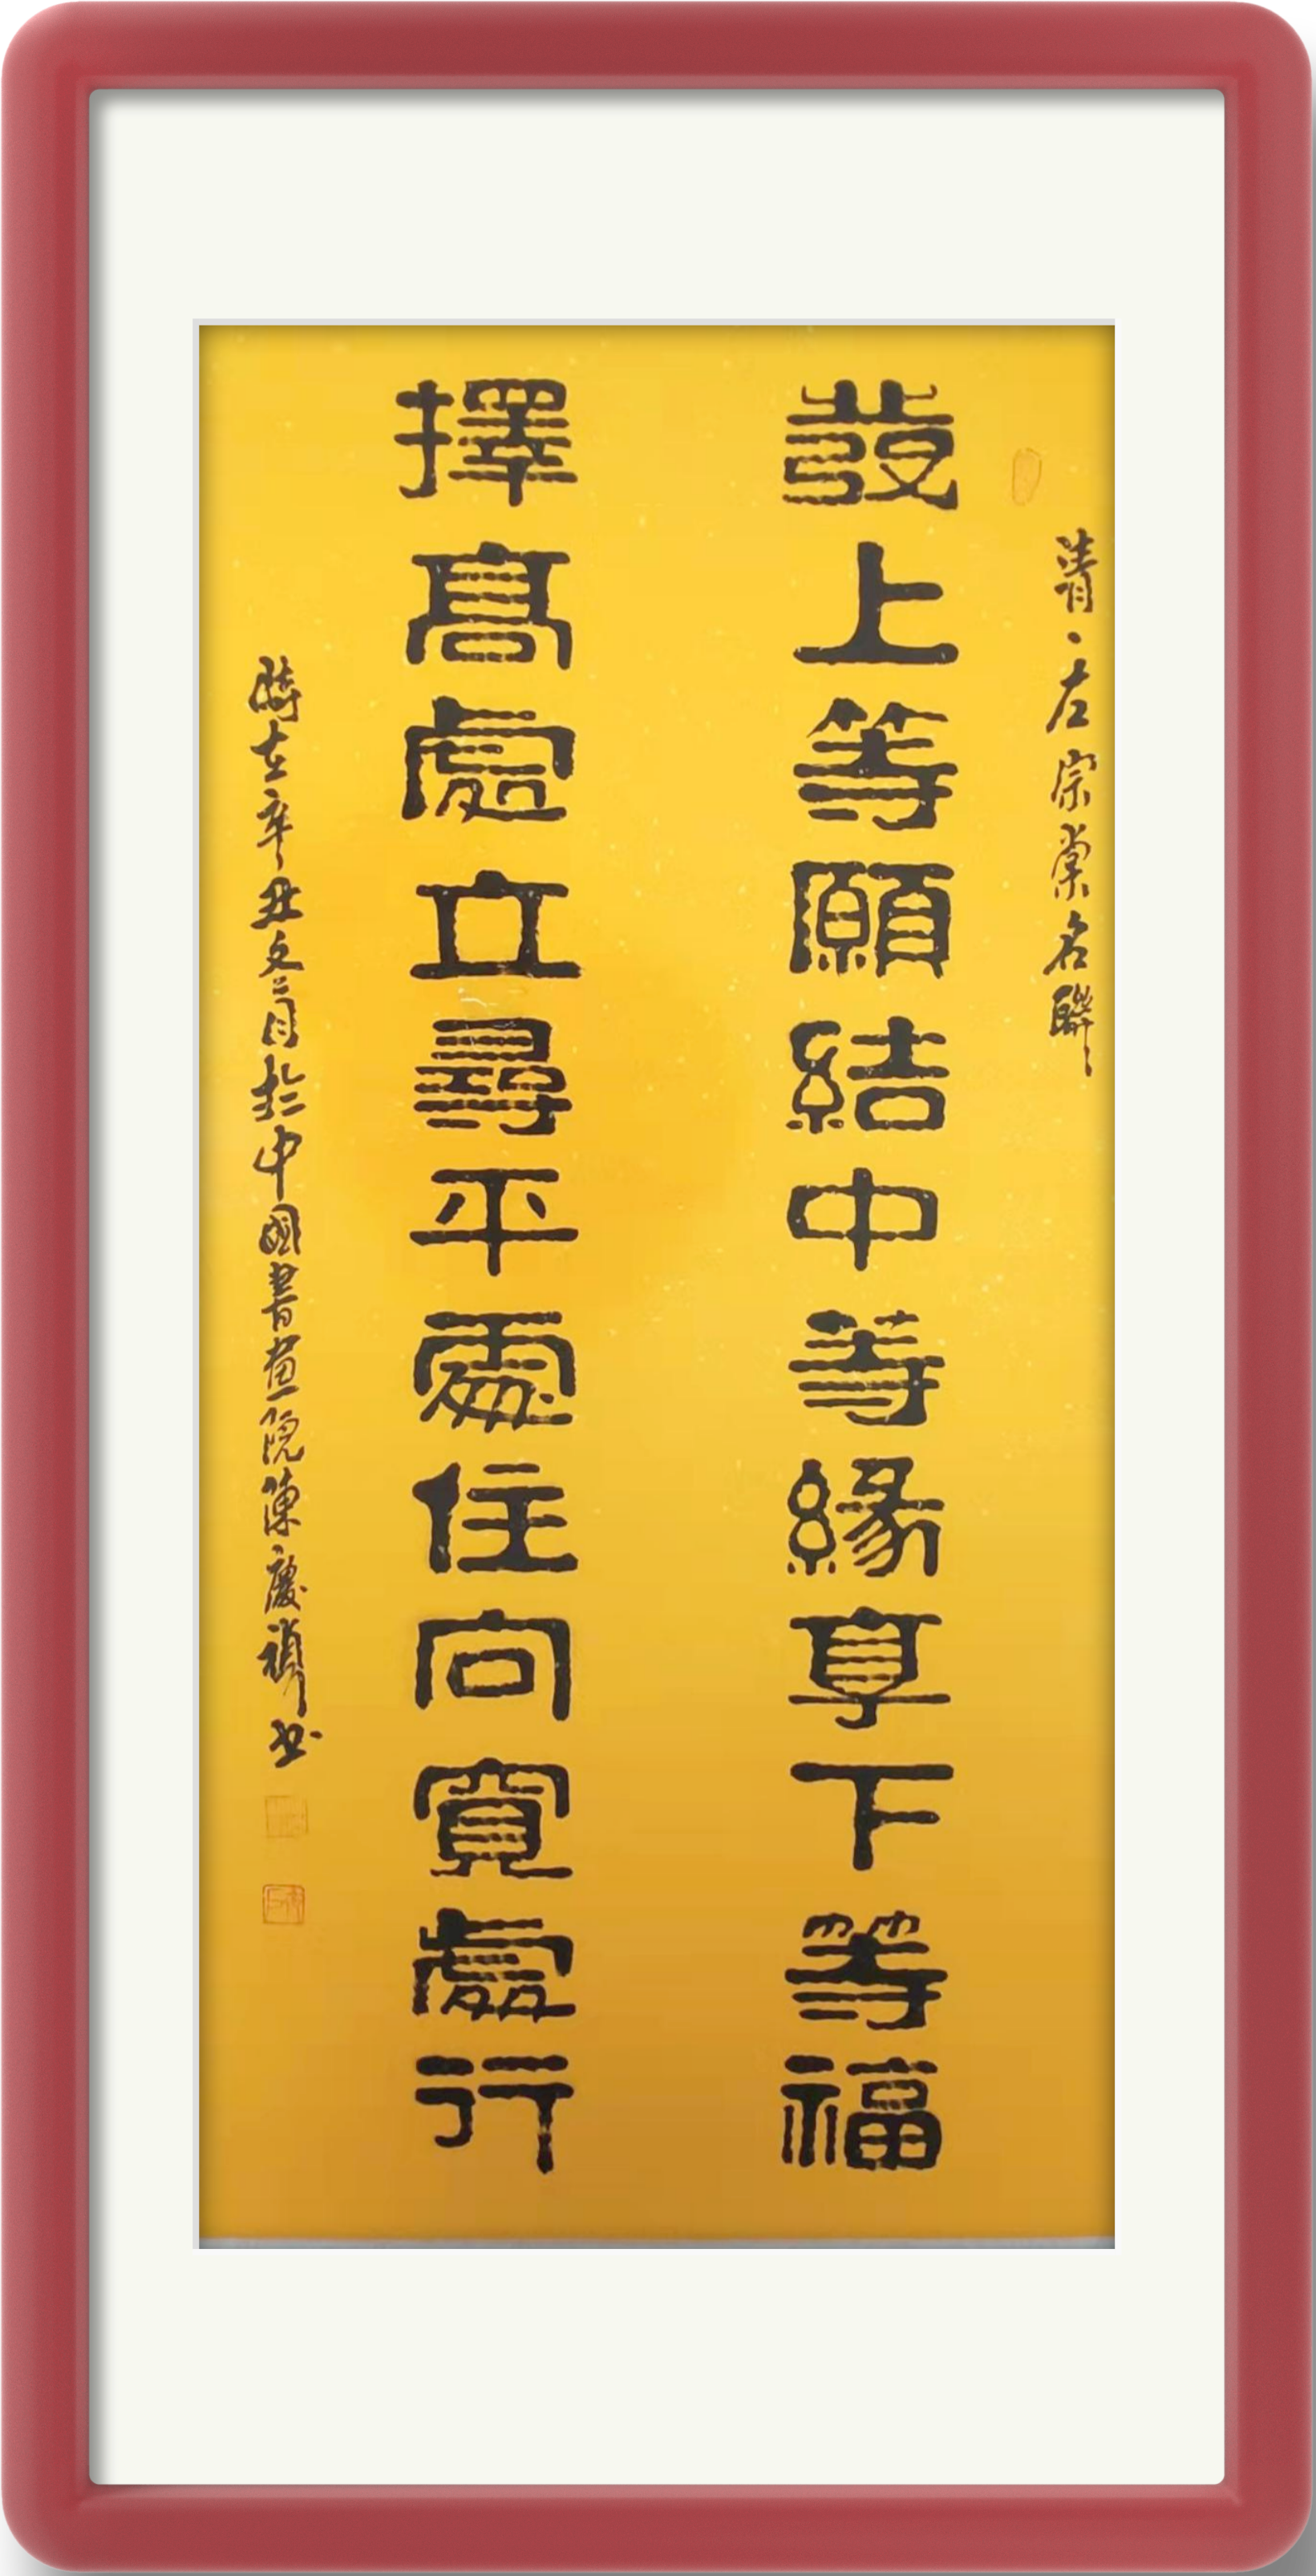 清、左宗棠名聯
發上等願結中等緣享下等福
擇高處立尋平處住向寬處行
時在辛丑文二月於中國書畫院陳慶禎书